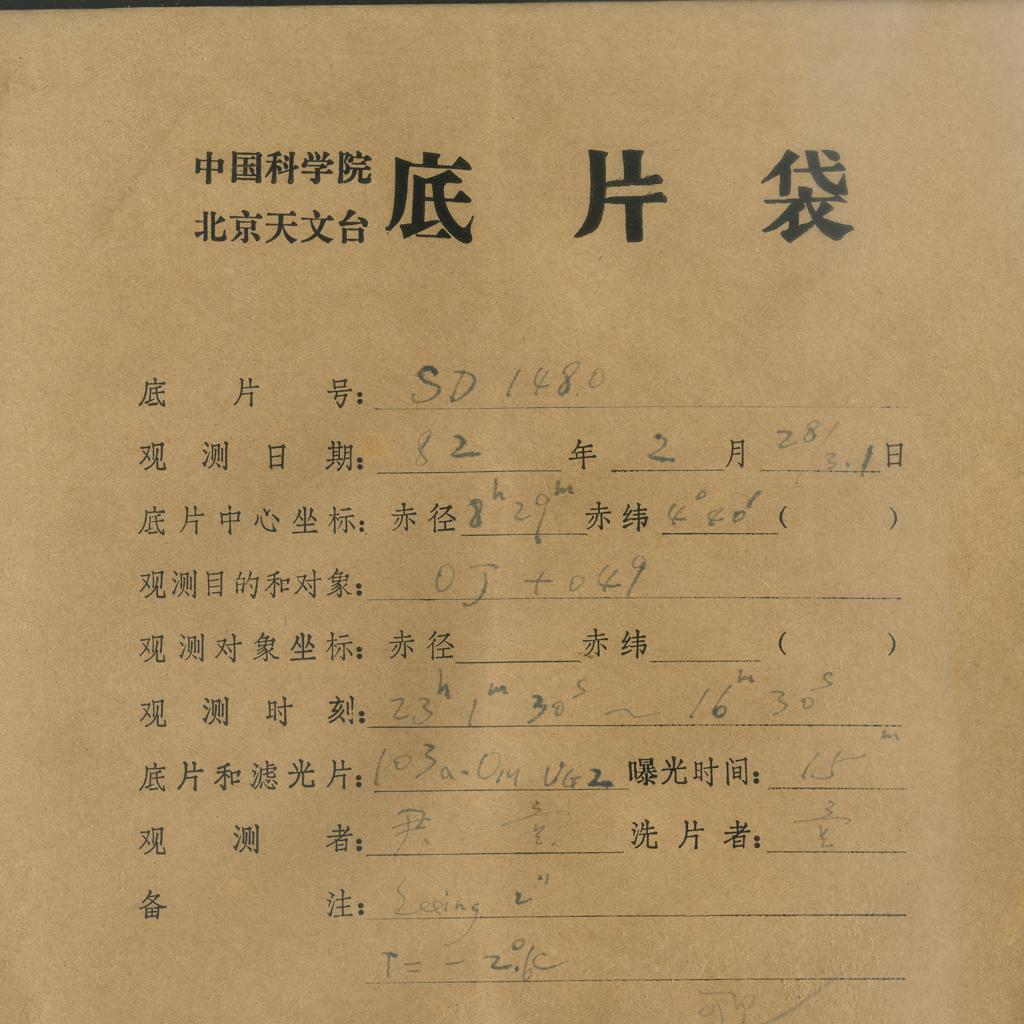 中国科学院
北京天文台
底片袋
底片号: SD 1480
观测日期: 82年2月28/3.1日
底片中心坐标: 赤径 8h29m 赤纬 4°40′ ( )
观测目的和对象: OJ + 049
观测对象坐标: 赤径 赤纬 ( )
观测时刻: 23h 1m 30s ~ 16m 30s
底片和滤光片: 103a-O UG2 曝光时间: 15m
观测者: 尹 洗片者:
备注: Seeing 2"
T = - 2°.6C